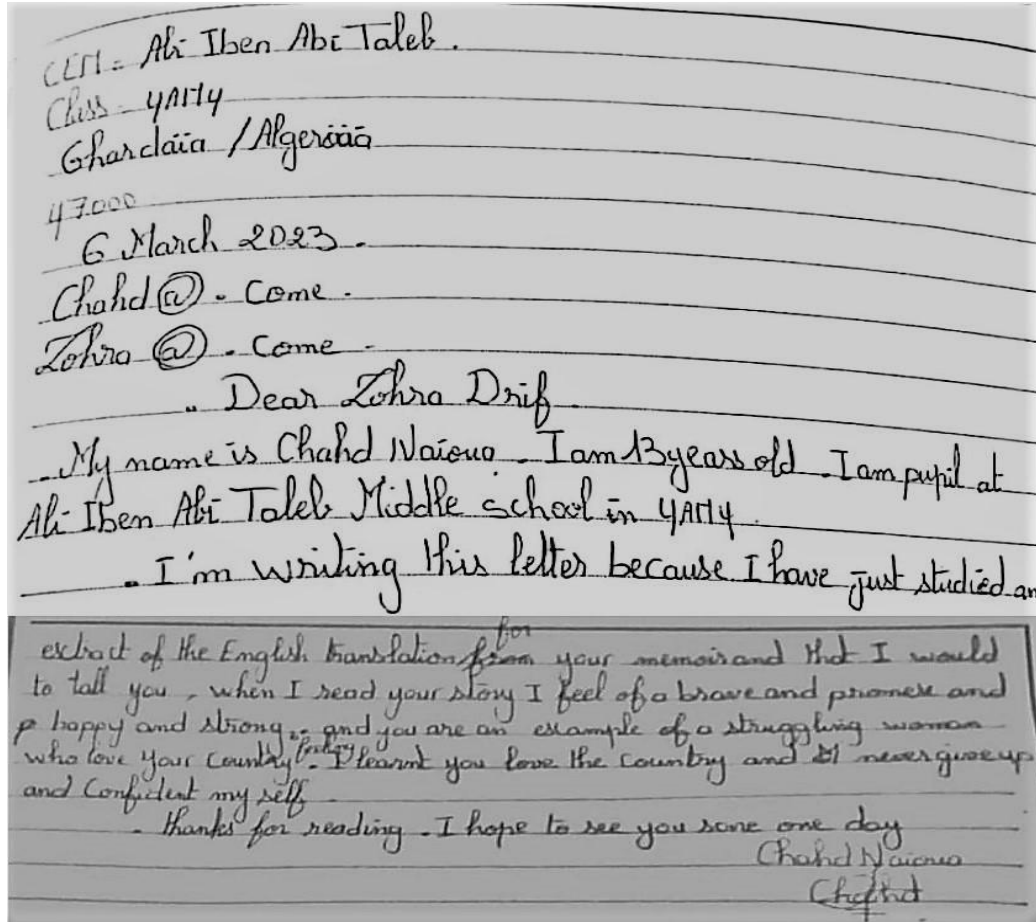 CEM = Ali Iben Abi Taleb.
Class - 4AM4
Ghardaïa / Algeria
47000
6 March 2023.
Chahd@. Come.
Zohra @. Come.
. Dear Zohra Drif.
. My name is Chahd Naioua. I am 13 years old. I am pupil at
Ali Iben Abi Taleb Middle school in 4AM4.
. I'm writing this letter because I have just studied an
extract of the English translation for your memoir and that I would
to tall you, when I read your story I feel of a brave and and
happy and strong. and you are an example of a struggling woman
who love your country. I learnt you love the country and never give up
and Confident my self.
. thanks for reading. I hope to see you one day
Chahd Naioua
Chahd